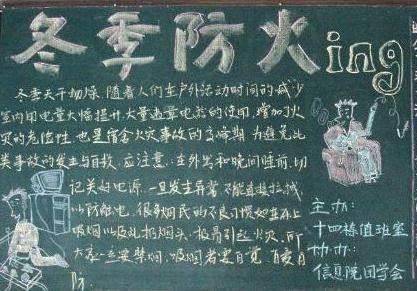 冬季防火ing
冬季天干物燥,随着人们在户外活动时间的减少
室内用电量大幅提升,大量违章电器的使用,增加了火
灾的危险性,也是宿舍火灾事故的高峰期,为避免此
类事故的发生与自救,应注意,在外出和晚间睡前,切
记关好电源,一旦发生异常,不能直接拉拭
以防触电,很多烟民的不良习惯如在床上
吸烟以及乱扔烟头,极易引起火灾,所
大家一定要禁烟,吸烟者要自觉,
防.
主办:
十四栋值班室
协办:
信息院团学会